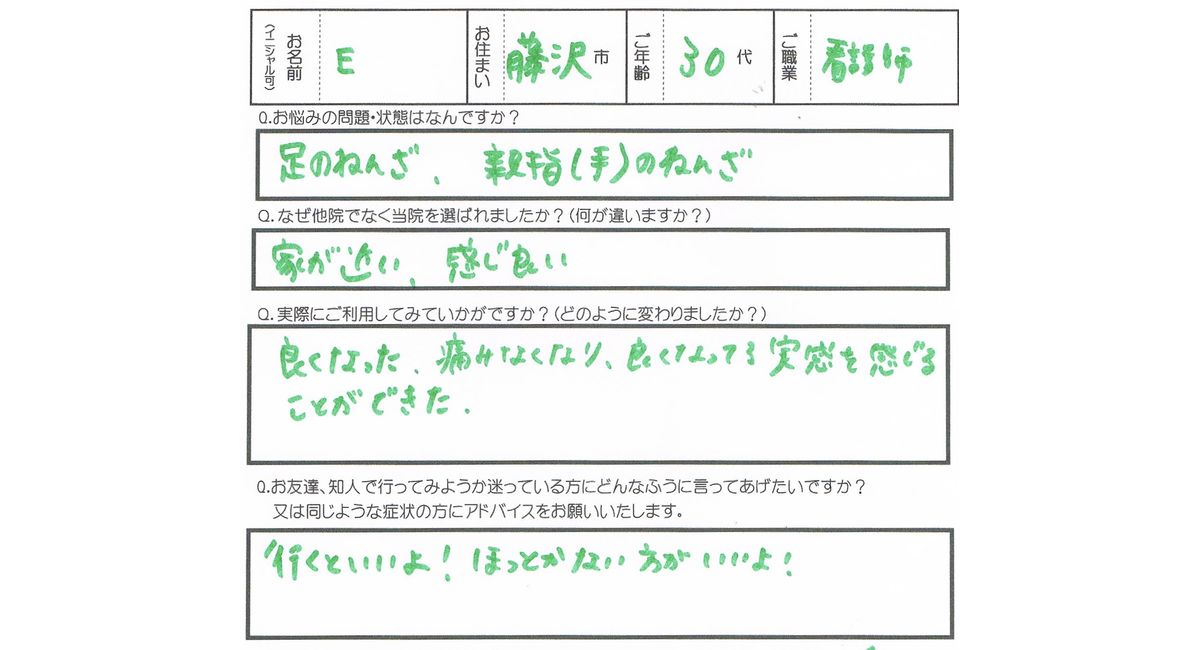 お名前（イニシャル可） E お住まい 藤沢市 ご年齢 30代 ご職業 看護師
Q.お悩みの問題・状態はなんですか？
足のねんざ、親指(手)のねんざ
Q.なぜ他院でなく当院を選ばれましたか？（何が違いますか？）
家が近い、感じ良い
Q.実際にご利用してみていかがですか？（どのように変わりましたか？）
良くなった、痛みなくなり、良くなってる実感を感じる
ことができた.
Q.お友達、知人で行ってみようか迷っている方にどんなふうに言ってあげたいですか？
又は同じような症状の方にアドバイスをお願いいたします。
行くといいよ！ほっとかない方がいいよ！